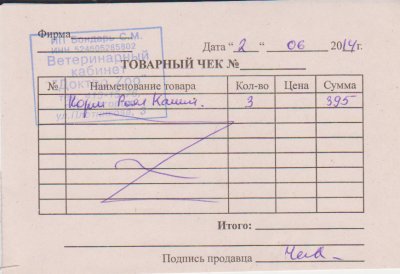 Фирма
ИП Бондарь С.М.
ИНН 524605285802
Ветеринарный
кабинет
Дата “2” 06 2014г.
ТОВАРНЫЙ ЧЕК №
№ Наименование товара Кол-во Цена Сумма
Корм Роял Канин. 3 395
Итого:
Подпись продавца